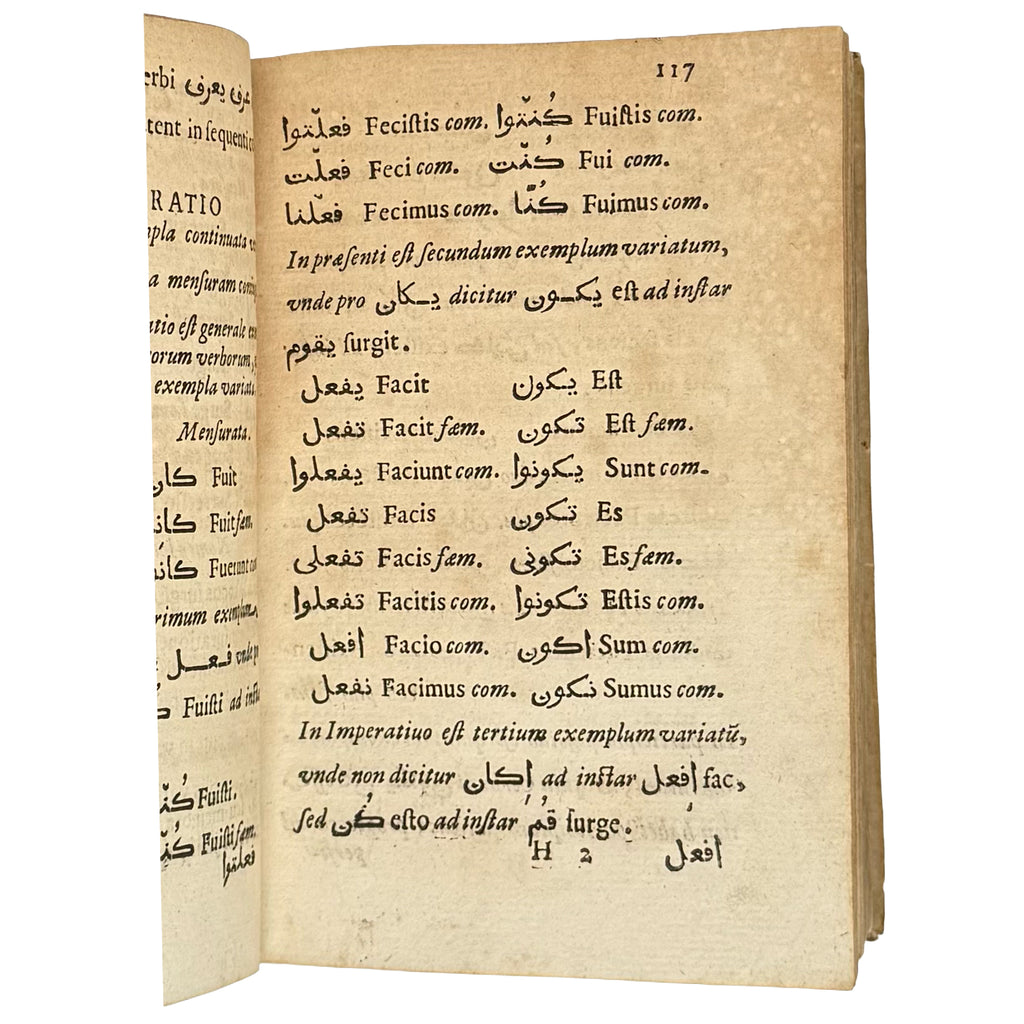 erbi عرف يعرف
tent in ſequenti
RATIO
continuata
a menſuram
atio eſt generale
orum verborum,
exempla variata
Menſurata.
كان Fuit
Fuit fæm.
Fuerunt
rimum exemplum,
فعل vnde
Fuiſti ad
Fuiſti.
Fuiſti fæm.
فعلتوا
117
فعلّتوا Feciſtis com. كُنتّوا Fuiſtis com.
فعلّت Feci com. كُنّت Fui com.
فعلّنا Fecimus com. كُنّا Fuimus com.
In præſenti eſt ſecundum exemplum variatum,
vnde pro يكان dicitur يكون eſt ad inſtar
يقوم ſurgit.
يفعل Facit يكون Eſt
تفعل Facit fæm. تكون Eſt fæm.
يفعلوا Faciunt com. يكونوا Sunt com.
تفعل Facis تكون Es
تفعلى Facis fæm. تكونى Es fæm.
تفعلوا Facitis com. تكونوا Eſtis com.
افعل Facio com. اكون Sum com.
نفعل Facimus com. نكون Sumus com.
In Imperatiuo eſt tertium exemplum variatũ,
vnde non dicitur اكان ad inſtar افعل fac,
ſed كُن eſto ad inſtar قُم ſurge.
H 2 افعل